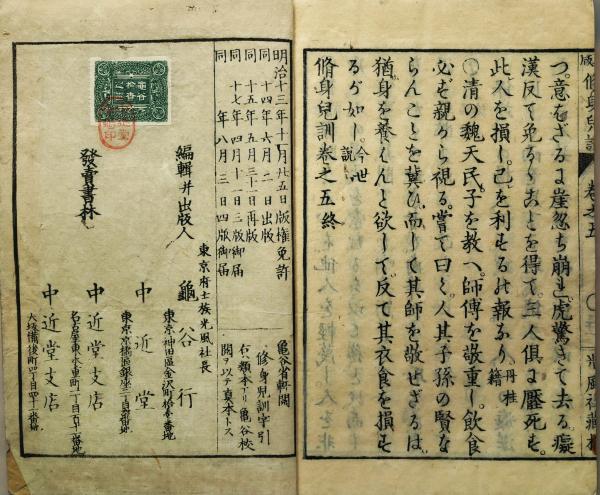 つ。意をざるは崖忽ち崩れ虎驚きて去る癡
漢反て免るゝことを得て。三人俱に壓死も。
此人を損し。己を利もるの報なり 丹桂籍
〇清の魏天民。子を教へ。師傅を敬重し。飲食
必も親から視る。嘗て曰く。人其子孫の賢な
らんことを冀ひ。而して其師を敬せざるは。
猶身を養はんと欲して。反て其衣食を損も
るが如し。今世說
脩身兒訓卷之五終
明治十三年十一月廿五日版權免許
同 十四年六月二日出版
同 十五年五月三十一日再版
同 十七年四月十日三版御届
同 年八月三日四版御届
龜谷省軒閲
脩身兒訓字引
右ハ類本アリ龜谷校
閲ヲ以テ真本トス
東京府士族光風社長
編輯并出版人 龜谷行
東京神田區金沢町
發賣書林
中近堂
東京京橋區銀座二丁目
中近堂支店
名古屋東水重町
中近堂支店
大坂備後町四丁目四十一番地